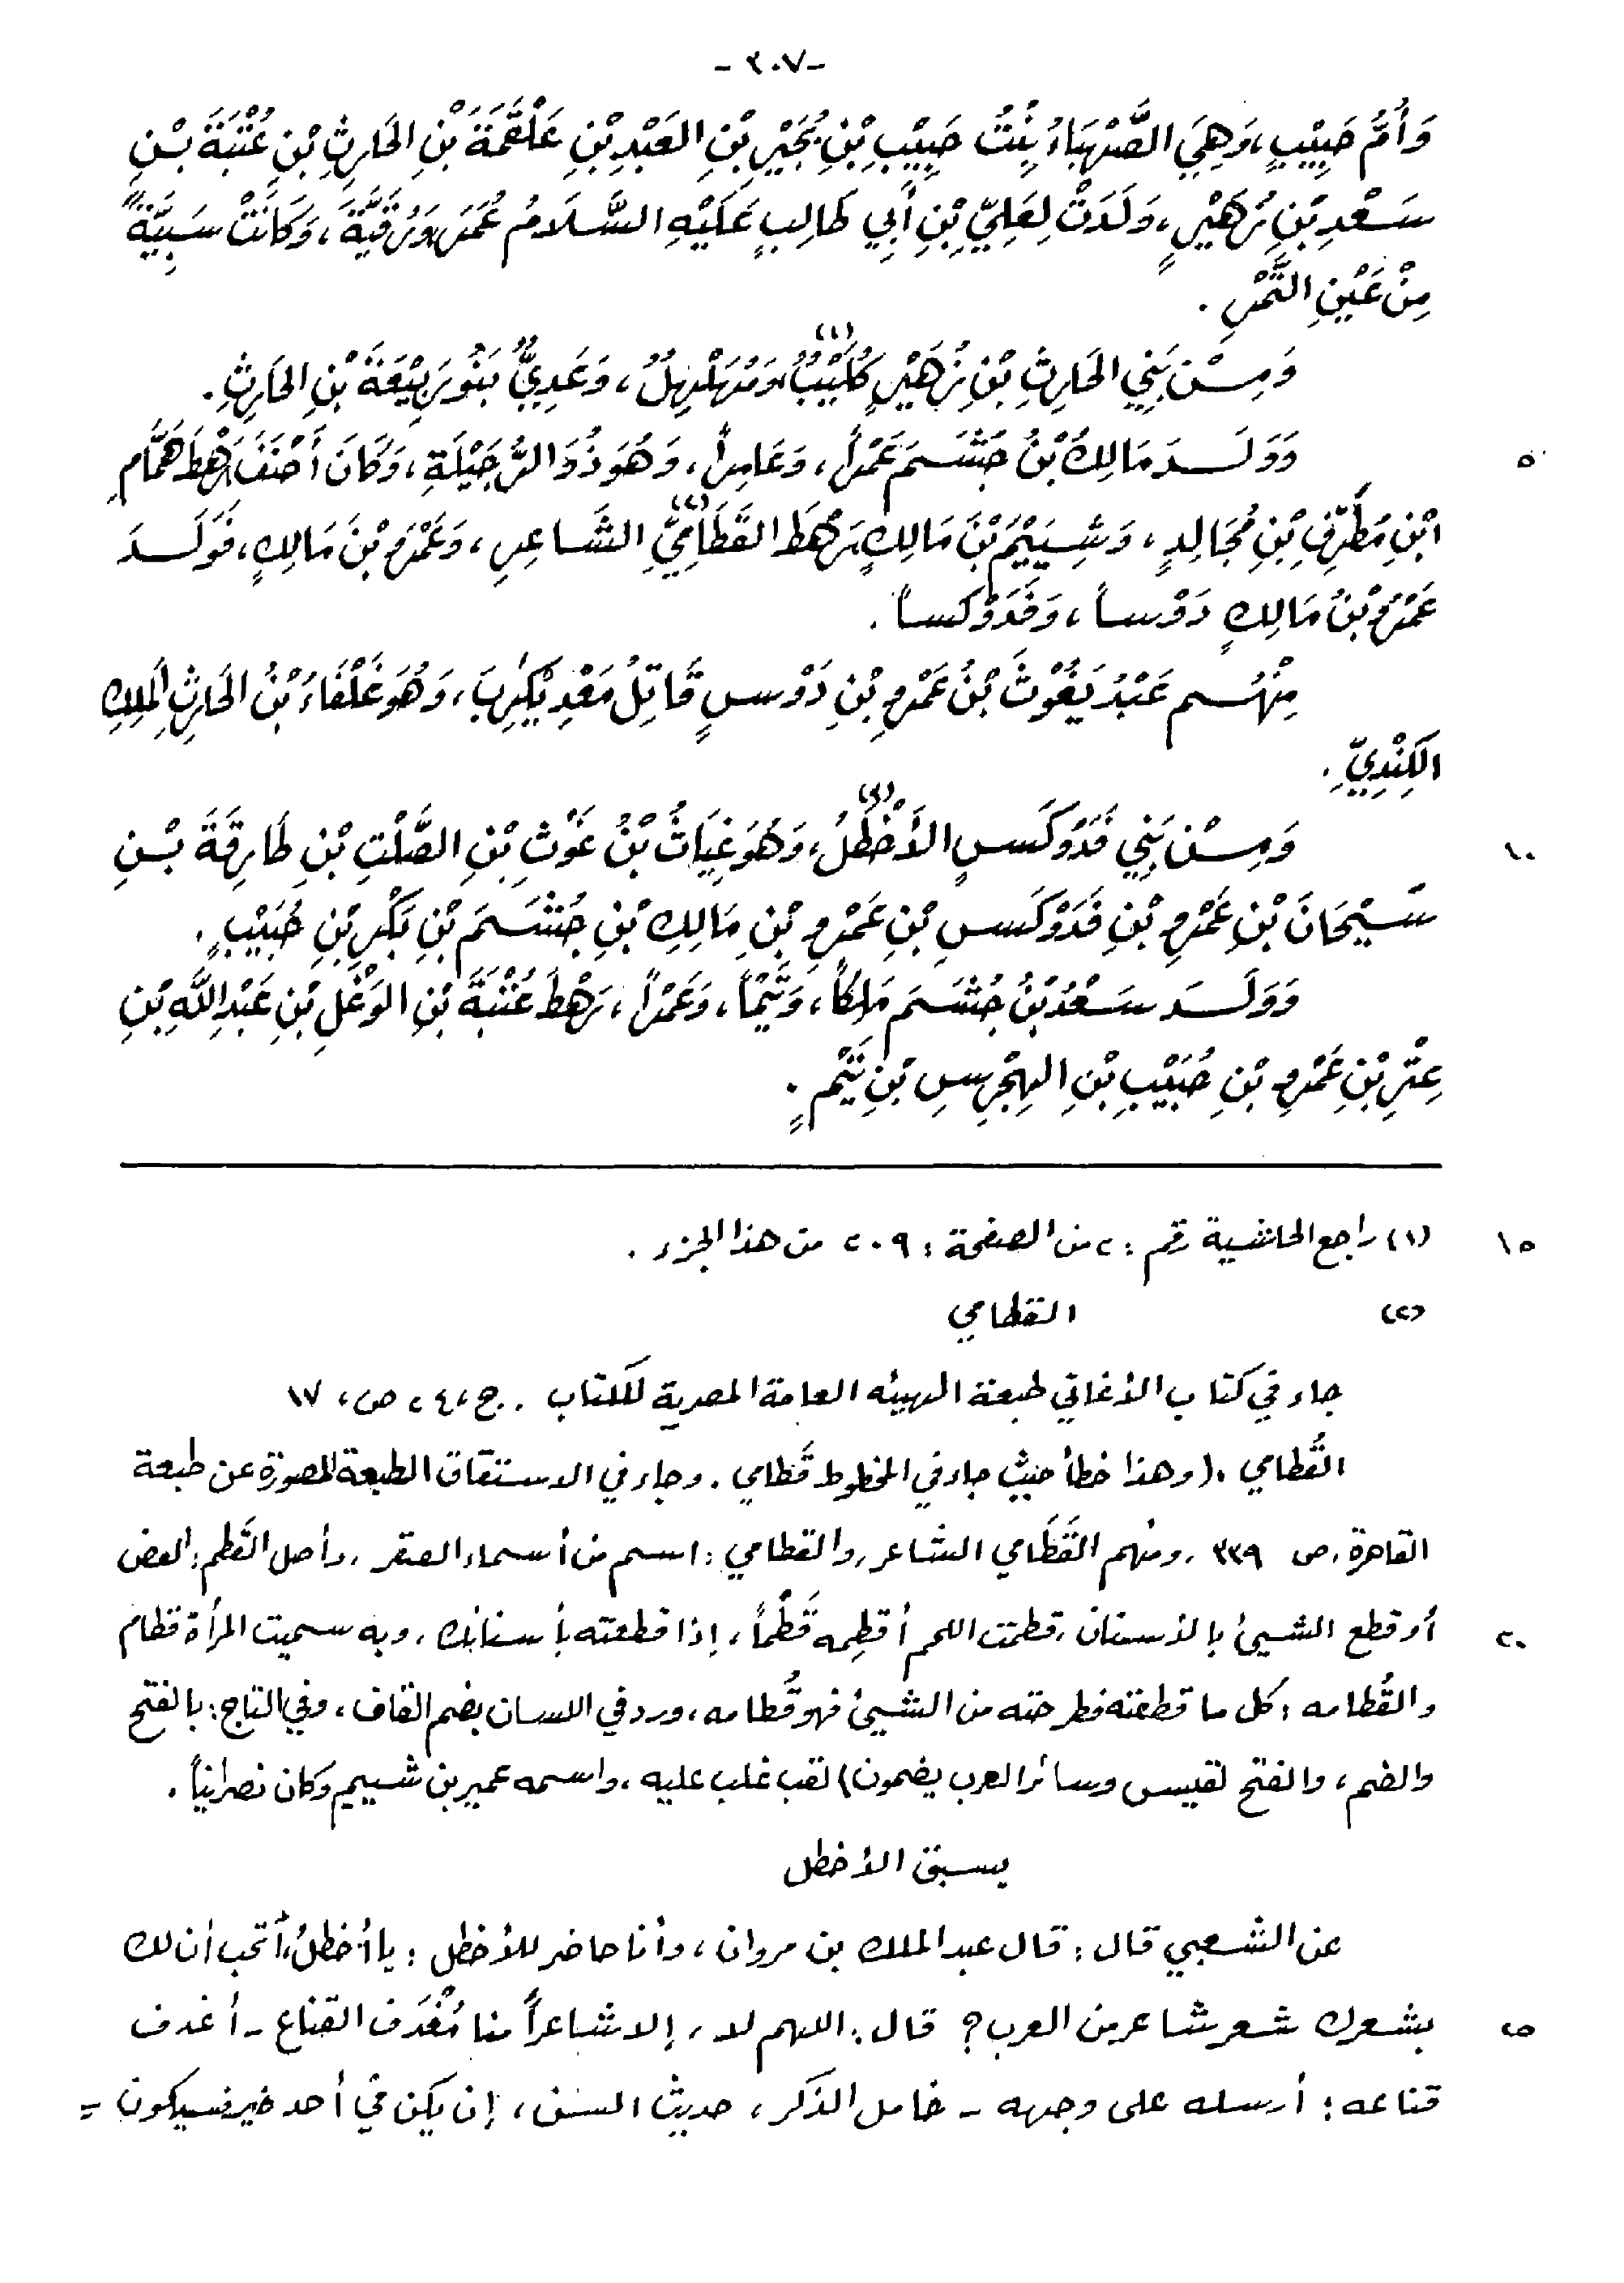 -٣٠٧-
وَأُمَّ حَبِيْبٍ، وَهِيَ الصَّهْبَاءُ بِنْتُ حَبِيْبِ بْنِ بُجَيْرِ بْنِ العَبْدِ بْنِ عَلْقَمَةَ بْنِ الحَارِثِ بْنِ عُتْبَةَ بْنِ
سَعْدِ بْنِ زُهَيْرٍ، وَلَدَتْ لِعَلِيِّ بْنِ أَبِي طَالِبٍ عَلَيْهِ السَّلَامُ عُمَرَ، وَرُقَيَّةَ، وَكَانَتْ سَبِيَّةً
مِنْ عَيْنِ التَّمْرِ.
وَمِنْ بَنِي الحَارِثِ بْنِ زُهَيْرٍ كُلَيْبٌ (١) وَمُهَلْهِلٌ، وَعَدِيٌّ بَنُو رَبِيْعَةَ بْنِ الحَارِثِ.
٥ وَوَلَدَ مَالِكُ بْنُ جُشَمَ عَمْراً، وَعَامِراً، وَهُوَ ذُو الرُّجَيْلَةِ، وَكَانَ أَحْنَفَ رَهْطَ هَمَّامِ
ابْنِ مُطَرِّفِ بْنِ مُجَالِدٍ، وَشِيَيْمَ بْنَ مَالِكٍ رَهْطَ القَطَامِيِّ (٢) الشَّاعِرِ، وَعَمْرَو بْنَ مَالِكٍ، فَوَلَدَ
عَمْرُو بْنُ مَالِكٍ دَوْساً، وَفَدَوْكَساً.
مِنْهُم عَبْدُ يَغُوْثَ بْنُ عَمْرِو بْنِ دَوْسٍ قَاتِلُ مَعْدِيْكَرِبَ، وَهُوَ غَلْفَاءُ بْنُ الحَارِثِ المَلِكِ
الكِنْدِيِّ.
١٠ وَمِنْ بَنِي فَدَوْكَسٍ الأَخْطَلُ (٣)، وَهُوَ غِيَاثُ بْنُ غَوْثِ بْنِ الصَّلْتِ بْنِ طَارِقَةَ بْنِ
سَيْحَانَ بْنِ عَمْرِو بْنِ فَدَوْكَسِ بْنِ عَمْرِو بْنِ مَالِكِ بْنِ جُشَمَ بْنِ بَكْرِ بْنِ حُبَيْبٍ.
وَوَلَدَ سَعْدُ بْنُ جُشَمَ مَالِكاً، وَتَيْماً، وَعَمْراً، رَهْطَ عُتْبَةَ بْنِ الوَغْلِ بْنِ عَبْدِ اللَّهِ بْنِ
عِتْرِ بْنِ عَمْرِو بْنِ حُبَيْبِ بْنِ الهِجْرِسِ بْنِ تَيْمٍ.
١٥ (١) راجع الحاشية رقم: ٢ من الصفحة: ٢٠٩ من هذا الجزء.
(٢) القطامي
جاء في كتاب الأغاني طبعة الهيئه العامة المصرية للكتاب. ج، ٢٤ ص، ١٧
القُطامي. (وهذا خطأ حيث جاء في المخطوط قَطامي. وجاء في الاستقاق الطبعة المصورة عن طبعة
القاهرة، ص ٣٣٩، ومنهم القَطَامي الشاعر، والقطامي: اسم من أسماء الصقر، وأصل القَطم: العض
٢٠ أو قطع الشيئ بالأسنان، قطمت اللحم أقطِمه قَطْماً، إذا قطعته بأسنانك، وبه سميت المرأة قطام
والقُطامه: كل ما قطعته فطرحته من الشيئ فهو قُطامه، ورد في اللسان بضم القاف، وفي التاج: بالفتح
والضم، والفتح لقيس وسائر العرب يضمون) لقب غلب عليه، واسمه عمير بن شييم وكان نصرانياً.
يسبق الأخطل
عن الشعبي قال: قال عبد الملك بن مروان، وأنا حاضر للأخطل: يا أخطلُ، أتحب أن لك
٢٥ بشعرك شعر شاعر من العرب؟ قال: اللهم لا، إلا شاعراً منا مُغْدَف القناع - أغدف
قناعه: أرسله على وجهه - خامل الذكر، حديث السن، إن يكن في أحد خير فسيكون =